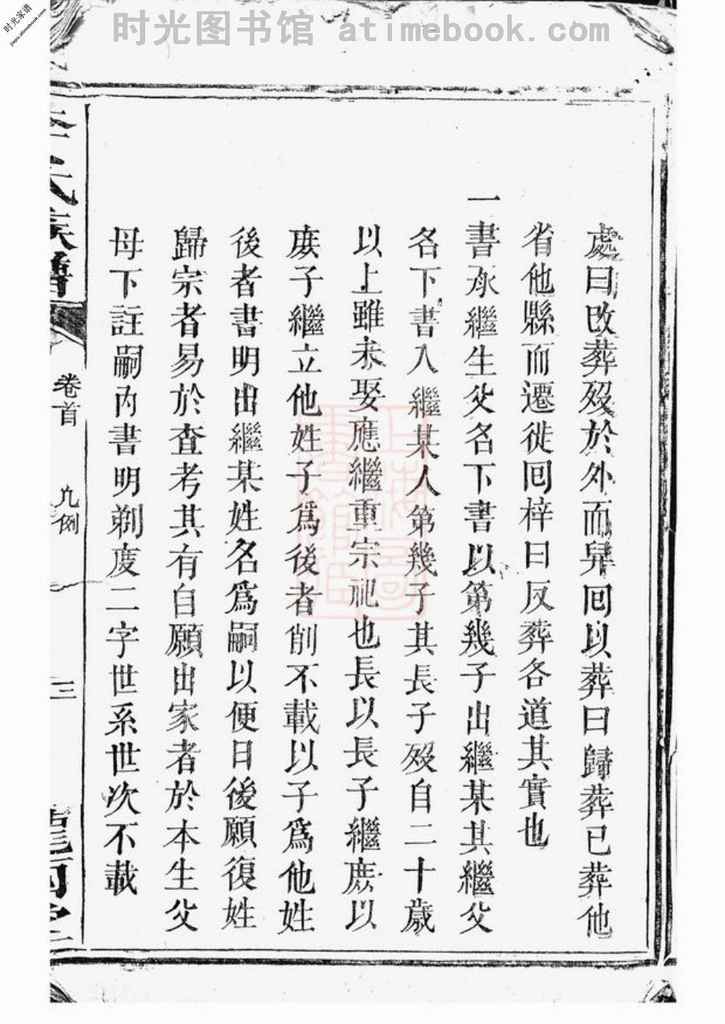 时光图书馆 atimebook.com
时光家谱
處曰改葬歿於外而舁回以葬曰歸葬已葬他
省他縣而遷徙回梓曰反葬各道其實也
一書承繼生父名下書以第幾子出繼某其繼父
名下書入繼某人第幾子其長子歿自二十歲
以上雖未娶應繼重宗祀也長以長子繼庶以
庶子繼立他姓子爲後者削不載以子爲他姓
後者書明出繼某姓名爲嗣以便日後願復姓
歸宗者易於查考其有自願出家者於本生父
母下註嗣內書明剃度二字世系世次不載
李氏族譜
卷首
凡例
三